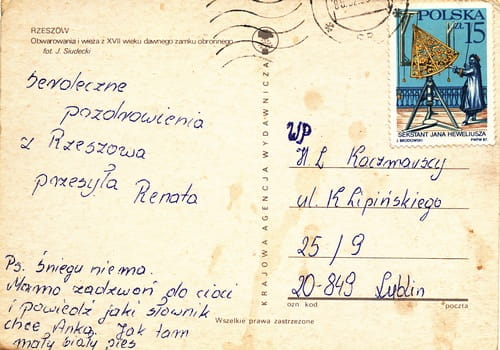 RZESZÓW
Obwarowania i wieża z XVII wieku dawnego zamku obronnego
fot. J. Siudecki
Serdeczne
pozdrowienia
z Rzeszowa
przesyła Renata
Ps. Śniegu nie ma.
Mamo zadzwoń do cioci
i powiedz jaki słownik
chce Anka. Jak tam
mały biały pies
KRAJOWA AGENCJA WYDAWNICZA
Wszelkie prawa zastrzeżone
POLSKA
ZŁ 15
SEKSTANT JANA HEWELIUSZA
PWPW 87
WP
H. L Kaczmarscy
ul. K Lipińskiego
25 / 9
20-849 Lublin
ozn kod
poczta